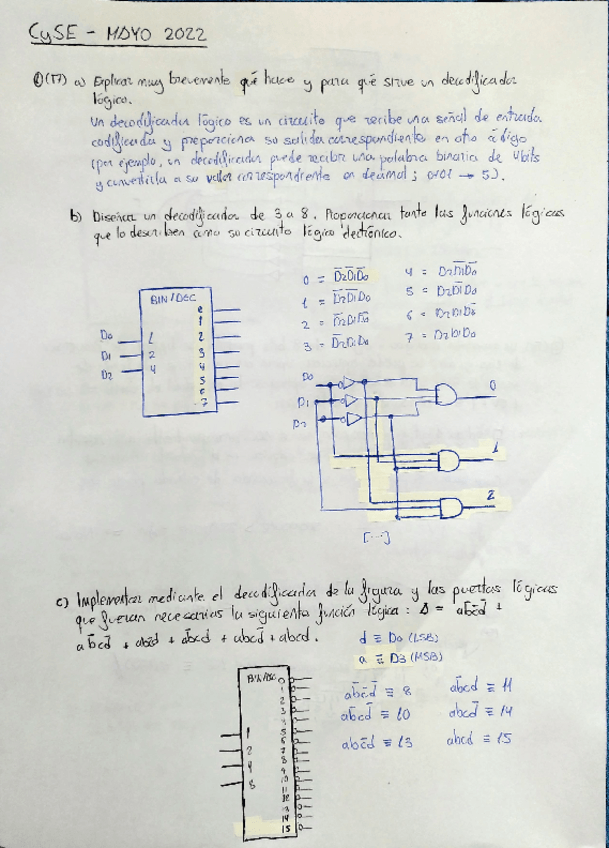 CySE - MAYO 2022
a) Explicar muy brevemente qué hace y para qué sirve un decodificador
lógico.
Un decodificador lógico es un circuito que recibe una señal de entrada
codificada y proporciona su salida correspondiente en otro código
(por ejemplo, un decodificador puede recibir una palabra binaria de 4bits
y convertirla a su valor correspondiente en decimal; 0101 → 5).
b) Diseñar un decodificador de 3 a 8. Proporcionar tanto las funciones lógicas
que lo describen como su circuito lógico electrónico.
BIN/DEC
0
1
D0 1 2
D1 2 3
D2 4 4
5
6
7
0 = D̅2D̅1D̅0 4 = D2D̅1D̅0
1 = D̅2D̅1D0 5 = D2D̅1D0
2 = D̅2D1D̅0 6 = D2D1D̅0
3 = D̅2D1D0 7 = D2D1D0
D0 0
D1
D2
1
2
[...]
c) Implementar mediante el decodificador de la figura y las puertas lógicas
que fueran necesarias la siguiente función lógica: = ab̅c̅d̅ +
ab̅cd̅ + abc̅d + ab̅cd + abcd̅ + abcd.
d ≡ D0 (LSB)
a ≡ D3 (MSB)
BIN/DEC 0
1
2
3
4
1 5
2 6
4 7
8 8
9
10
11
12
13
14
15
ab̅c̅d̅ ≡ 8 ab̅cd ≡ 11
ab̅cd̅ ≡ 10 abcd̅ ≡ 14
abc̅d ≡ 13 abcd ≡ 15